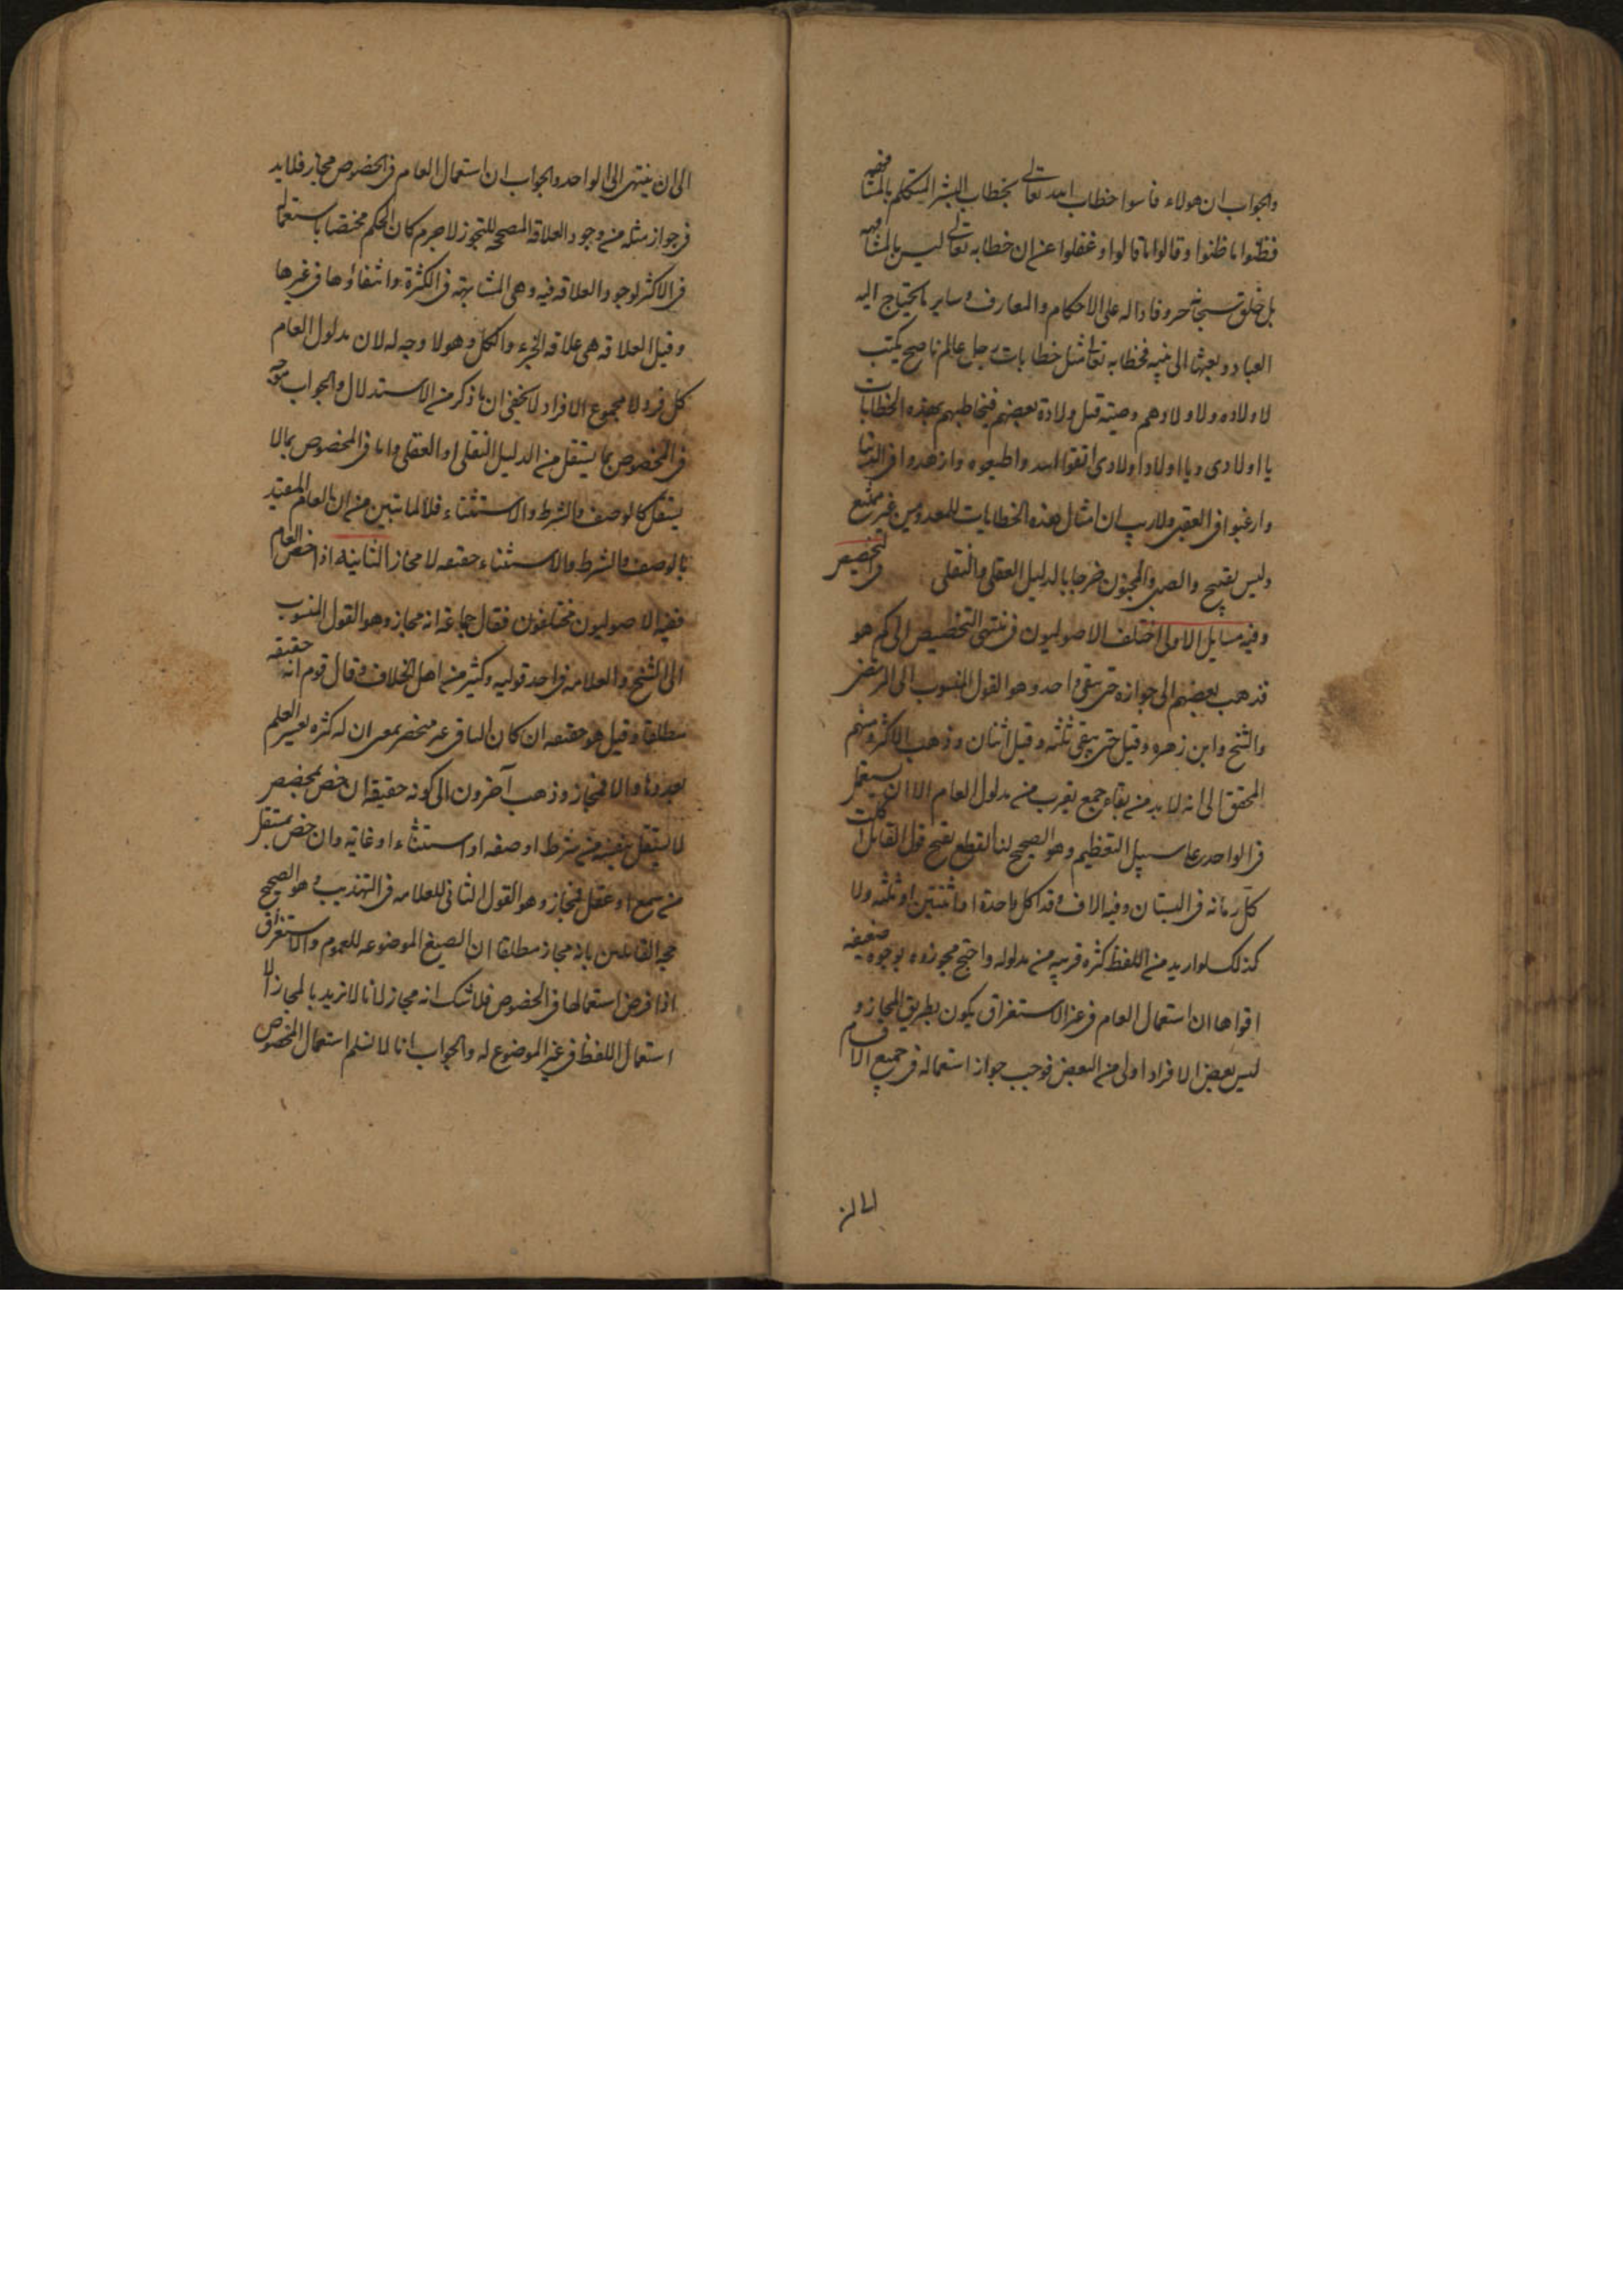 والجواب ان هولاء قاسوا خطاب الله تعالى بخطاب البشر المتكلم بالمشافهه
فظنوا ما ظنوا وقالوا ما قالوا وغفلوا عن ان خطابه تعالى ليس بالمشافهه
بل خلق سبحانه حروفا داله على الاحكام والمعارف وساير ما يحتاج اليه
العباد وبعثها الى نبيه فخطابه تعالى مثل خطابات رجل عالم ناصح يكتب
لاولاده ولاولادهم وصيته قبل ولادة بعضهم فيخاطبهم بهذه الخطابات
يا اولادى ويا اولاد اولادى اتقوا الله واطيعوه وازهدوا فى الدنيا
وارغبوا فى العقبى ولا ريب ان امثال هذه الخطابات للمعدومين غير ممتنع
وليس بقبيح والصبى والمجنون خرجا بالدليل العقلى والنقلى فى التخصيص
وفيه مسايل الاولى اختلف الاصوليون فى منتهى التخصيص الى كم هو
فذهب بعضهم الى جوازه حتى يبقى واحد وهو القول المنسوب الى المرتضى
والشيخ وابن زهره وقيل حتى يبقى ثلثه وقيل اثنان وذهب الاكثر ومنهم
المحقق الى انه لا بد من بقاء جمع يقرب من مدلول العام الا ان يستعمل
فى الواحد على سبيل التعظيم وهو الصحيح لنا القطع بقبح قول القائل اكلت
كل رمانه فى البستان وفيه الاف وقد اكل واحدة او اثنتين او ثلثه ولا
كذلك لو اريد من اللفظ كثره قريبه من مدلوله واحتج مجوزوه بوجوه ضعيفه
اقواها ان استعمال العام فى غير الاستغراق يكون بطريق المجاز و
ليس بعض الافراد اولى من البعض فوجب جواز استعماله فى جميع الاقسام
الى ان
الى ان ينتهى الى الواحد والجواب ان استعمال العام فى الخصوص مجاز فلا بد
فى جواز مثله من وجود العلاقه المصححه للتجوز لا جرم كان الحكم مختصا باستعماله
فى الاكثر لوجود العلاقه فيه وهى المشابهة فى الكثرة وانتفاؤها فى غيرها
وقيل العلاقه هى علاقه الجزء والكل وهو لا وجه له لان مدلول العام
كل فرد لا مجموع الافراد لا يخفى ان ما ذكر من الاستدلال والجواب متوجه
فى المخصوص بما يستقل من الدليل النقلى او العقلى واما فى المخصوص بما لا
يستقل كالوصف والشرط والاستثناء فلا لما تبين من ان العام المقيد
بالوصف والشرط والاستثناء حقيقه لا مجاز الثانيه اذا خص العام
ففيه الاصوليون مختلفون فقال جماعة انه مجاز وهو القول المنسوب
الى الشيخ والعلامه فى احد قوليه وكثير من اهل الخلاف وقال قوم انه حقيقه
مطلقا وقيل هو حقيقه ان كان الباقى غير منحصر بمعنى ان له كثره يعسر العلم
بعددها والا فمجاز وذهب آخرون الى كونه حقيقه ان خص بمخصص
لا يستقل بنفسه من شرط او صفه او استثناء او غاية وان خص بمستقل
من سمع او عقل فمجاز وهو القول الثانى للعلامه فى التهذيب وهو الصحيح
حجه القائلين بانه مجاز مطلقا ان الصيغ الموضوعه للعموم والاستغراق
اذا فرض استعمالها فى الخصوص فلا شك انه مجاز لانا لا نريد بالمجاز الا
استعمال اللفظ فى غير الموضوع له والجواب انا لا نسلم استعمال المخصوص